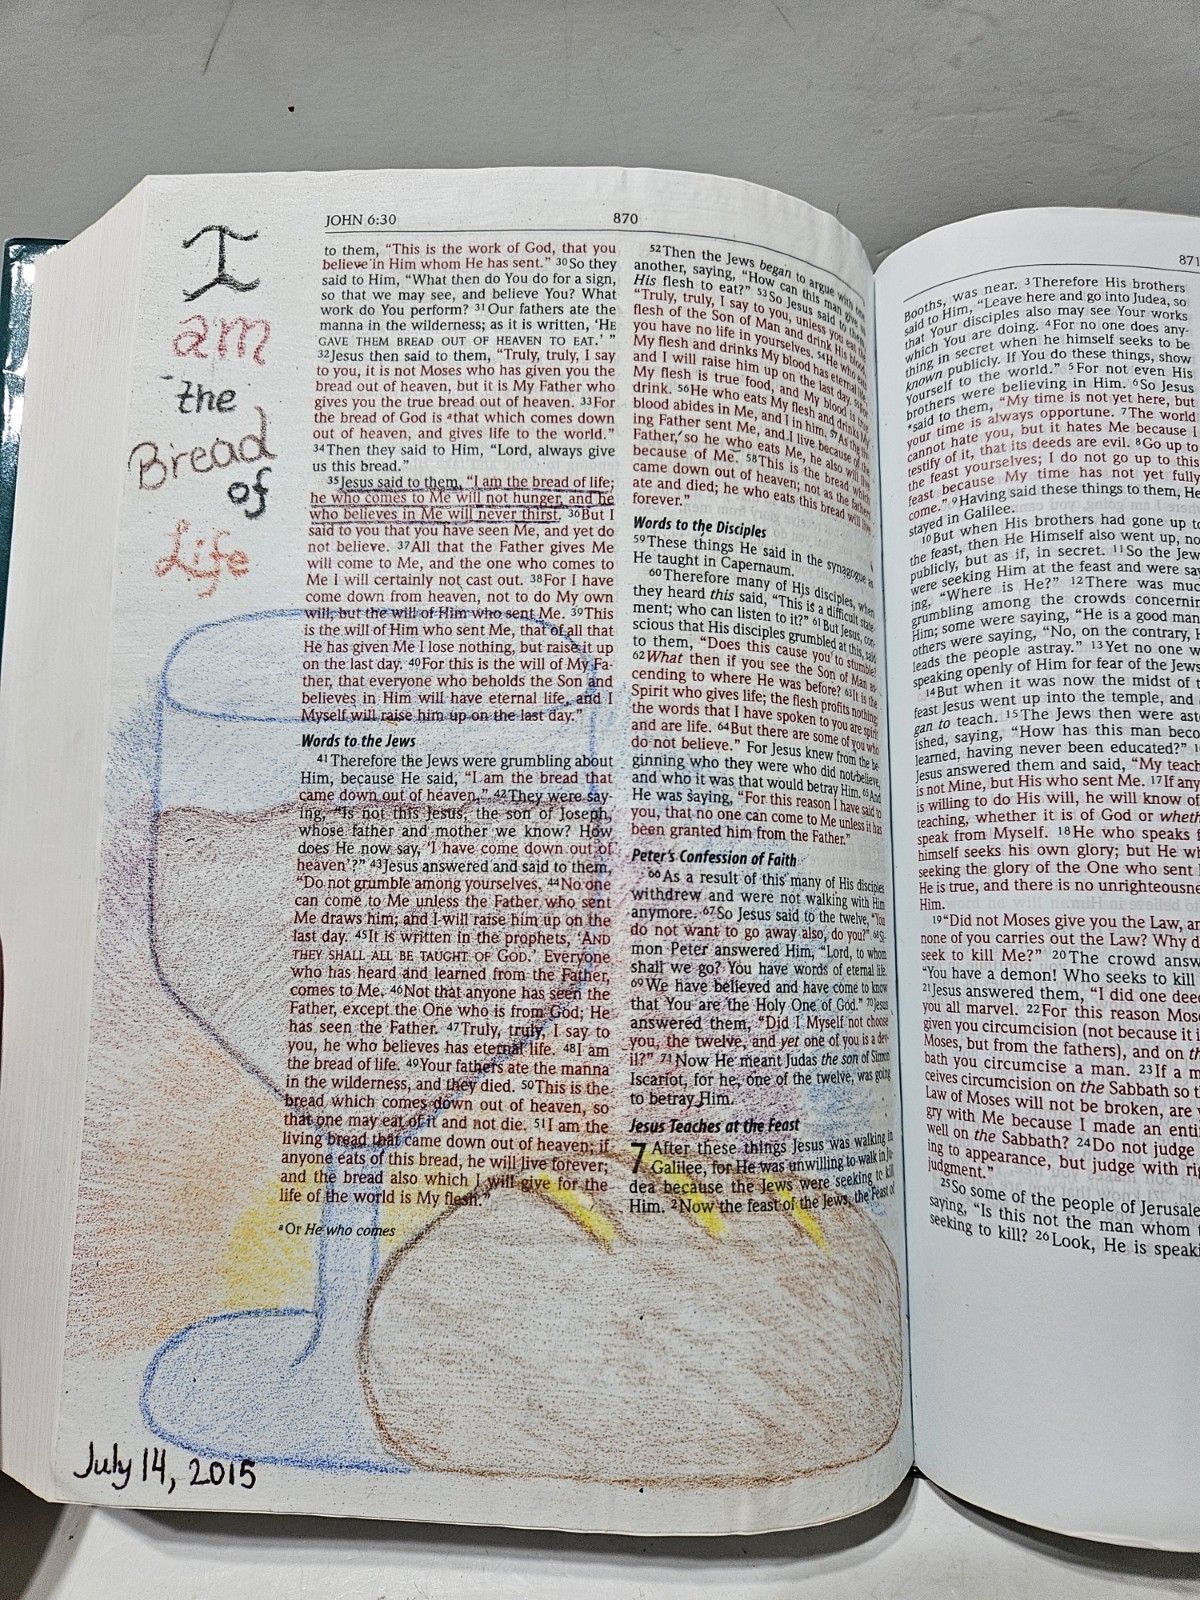 I
am
the
Bread
of
Life
JOHN 6:30
870
to them, “This is the work of God, that you
believe in Him whom He has sent.” 30So they
said to Him, “What then do You do for a sign,
so that we may see, and believe You? What
work do You perform? 31Our fathers ate the
manna in the wilderness; as it is written, ‘HE
GAVE THEM BREAD OUT OF HEAVEN TO EAT.’ ”
32Jesus then said to them, “Truly, truly, I say
to you, it is not Moses who has given you the
bread out of heaven, but it is My Father who
gives you the true bread out of heaven. 33For
the bread of God is athat which comes down
out of heaven, and gives life to the world.”
34Then they said to Him, “Lord, always give
us this bread.”
35Jesus said to them, “I am the bread of life;
he who comes to Me will not hunger, and he
who believes in Me will never thirst. 36But I
said to you that you have seen Me, and yet do
not believe. 37All that the Father gives Me
will come to Me, and the one who comes to
Me I will certainly not cast out. 38For I have
come down from heaven, not to do My own
will, but the will of Him who sent Me. 39This
is the will of Him who sent Me, that of all that
He has given Me I lose nothing, but raise it up
on the last day. 40For this is the will of My Fa-
ther, that everyone who beholds the Son and
believes in Him will have eternal life, and I
Myself will raise him up on the last day.”
Words to the Jews
41Therefore the Jews were grumbling about
Him, because He said, “I am the bread that
came down out of heaven.” 42They were say-
ing, “Is not this Jesus, the son of Joseph,
whose father and mother we know? How
does He now say, ‘I have come down out of
heaven’?” 43Jesus answered and said to them,
“Do not grumble among yourselves. 44No one
can come to Me unless the Father who sent
Me draws him; and I will raise him up on the
last day. 45It is written in the prophets, ‘AND
THEY SHALL ALL BE TAUGHT OF GOD.’ Everyone
who has heard and learned from the Father,
comes to Me. 46Not that anyone has seen the
Father, except the One who is from God; He
has seen the Father. 47Truly, truly, I say to
you, he who believes has eternal life. 48I am
the bread of life. 49Your fathers ate the manna
in the wilderness, and they died. 50This is the
bread which comes down out of heaven, so
that one may eat of it and not die. 51I am the
living bread that came down out of heaven; if
anyone eats of this bread, he will live forever;
and the bread also which I will give for the
life of the world is My flesh.”
aOr He who comes
52Then the Jews began to argue with one
another, saying, “How can this man give us
His flesh to eat?” 53So Jesus said to them,
“Truly, truly, I say to you, unless you eat the
flesh of the Son of Man and drink His blood,
you have no life in yourselves. 54He who eats
My flesh and drinks My blood has eternal life,
and I will raise him up on the last day. 55For
My flesh is true food, and My blood is true
drink. 56He who eats My flesh and drinks My
blood abides in Me, and I in him. 57As the liv-
ing Father sent Me, and I live because of the
Father, so he who eats Me, he also will live
because of Me. 58This is the bread which
came down out of heaven; not as the fathers
ate and died; he who eats this bread will live
forever.”
Words to the Disciples
59These things He said in the synagogue as
He taught in Capernaum.
60Therefore many of His disciples, when
they heard this said, “This is a difficult state-
ment; who can listen to it?” 61But Jesus, con-
scious that His disciples grumbled at this, said
to them, “Does this cause you to stumble?
62What then if you see the Son of Man as-
cending to where He was before? 63It is the
Spirit who gives life; the flesh profits nothing;
the words that I have spoken to you are spirit
and are life. 64But there are some of you who
do not believe.” For Jesus knew from the be-
ginning who they were who did not believe,
and who it was that would betray Him. 65And
He was saying, “For this reason I have said to
you, that no one can come to Me unless it has
been granted him from the Father.”
Peter’s Confession of Faith
66As a result of this many of His disciples
withdrew and were not walking with Him
anymore. 67So Jesus said to the twelve, “You
do not want to go away also, do you?” 68Si-
mon Peter answered Him, “Lord, to whom
shall we go? You have words of eternal life.
69We have believed and have come to know
that You are the Holy One of God.” 70Jesus
answered them, “Did I Myself not choose
you, the twelve, and yet one of you is a dev-
il?” 71Now He meant Judas the son of Simon
Iscariot, for he, one of the twelve, was going
to betray Him.
Jesus Teaches at the Feast
7 After these things Jesus was walking in
Galilee, for He was unwilling to walk in Ju-
dea because the Jews were seeking to kill
Him. 2Now the feast of the Jews, the Feast of
July 14, 2015
871
Booths, was near. 3Therefore His brothers
said to Him, “Leave here and go into Judea, so
that Your disciples also may see Your works
which You are doing. 4For no one does any-
thing in secret when he himself seeks to be
known publicly. If You do these things, show
Yourself to the world.” 5For not even His
brothers were believing in Him. 6So Jesus
*said to them, “My time is not yet here, but
your time is always opportune. 7The world
cannot hate you, but it hates Me because I
testify of it, that its deeds are evil. 8Go up to
the feast yourselves; I do not go up to this
feast because My time has not yet fully
come.” 9Having said these things to them, He
stayed in Galilee.
10But when His brothers had gone up to
the feast, then He Himself also went up, not
publicly, but as if, in secret. 11So the Jews
were seeking Him at the feast and were say-
ing, “Where is He?” 12There was much
grumbling among the crowds concerning
Him; some were saying, “He is a good man
others were saying, “No, on the contrary, H
leads the people astray.” 13Yet no one w
speaking openly of Him for fear of the Jews
14But when it was now the midst of t
feast Jesus went up into the temple, and
gan to teach. 15The Jews then were ast
ished, saying, “How has this man beco
learned, having never been educated?” 1
Jesus answered them and said, “My teach
is not Mine, but His who sent Me. 17If any
is willing to do His will, he will know of
teaching, whether it is of God or wheth
speak from Myself. 18He who speaks
himself seeks his own glory; but He wh
seeking the glory of the One who sent
He is true, and there is no unrighteousne
Him.
19“Did not Moses give you the Law, an
none of you carries out the Law? Why d
seek to kill Me?” 20The crowd answ
“You have a demon! Who seeks to kill
21Jesus answered them, “I did one deed
you all marvel. 22For this reason Mos
given you circumcision (not because it i
Moses, but from the fathers), and on th
bath you circumcise a man. 23If a m
ceives circumcision on the Sabbath so t
Law of Moses will not be broken, are
gry with Me because I made an enti
well on the Sabbath? 24Do not judge
ing to appearance, but judge with rig
judgment.”
25So some of the people of Jerusale
saying, “Is this not the man whom t
seeking to kill? 26Look, He is speaki